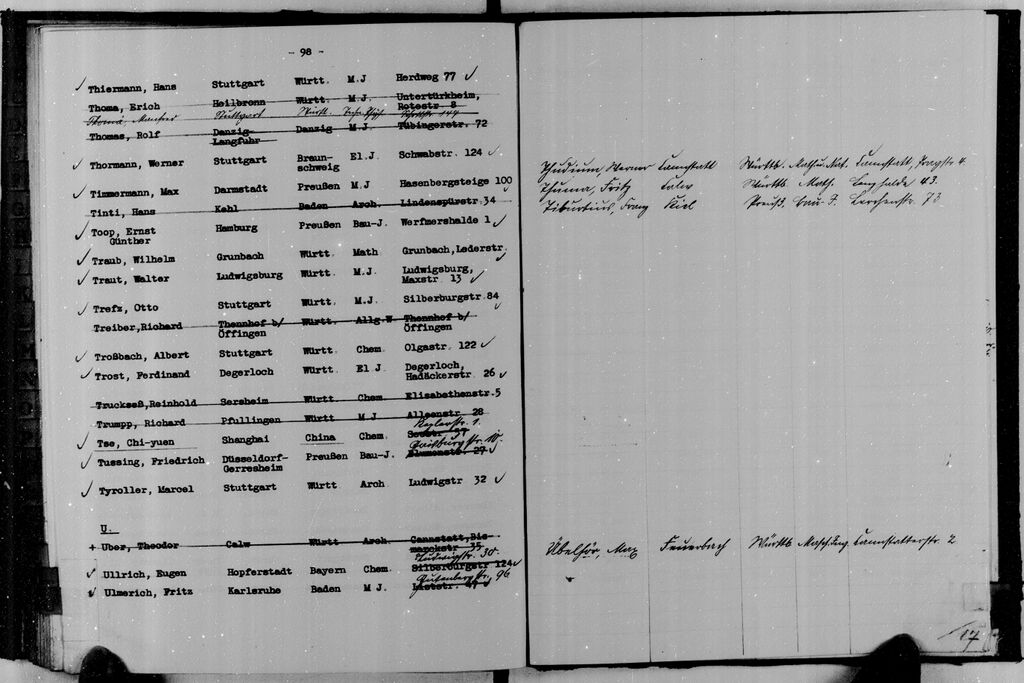 - 98 -
✓ Thiermann, Hans Stuttgart Württ. M.J Herdweg 77 ✓
Thoma, Erich Heilbronn Württ. M.J. Untertürkheim,
Rotestr 8
Thomä, Manfred Stuttgart Württ.
Thomas, Rolf Danzig- Danzig M.J Tübingerstr. 72
Langfuhr
✓ Thormann, Werner Stuttgart Braun- El.J Schwabstr. 124 ✓
schweig
✓ Timmermann, Max Darmstadt Preußen M.J Hasenbergsteige 100 ✓
Tinti, Hans Kehl Baden Arch. Lindenspürstr. 34
✓ Toop, Ernst Hamburg Preußen Bau-J. Werfmershalde 1 ✓
Günther
✓ Traub, Wilhelm Grunbach Württ. Math Grunbach, Lederstr. ✓
✓ Traut, Walter Ludwigsburg Württ. M.J. Ludwigsburg,
Maxstr 13 ✓
✓ Trefz, Otto Stuttgart Württ. M.J. Silberburgstr. 84 ✓
Treiber, Richard Thennhof b/ Württ. Allg.W Thennhof b/
Öffingen Öffingen
✓ Troßbach, Albert Stuttgart Württ. Chem. Olgastr. 122 ✓
✓ Trost, Ferdinand Degerloch Württ. El J Degerloch,
Hadäckerstr. 26 ✓
Truckseß, Reinhold Sersheim Württ Chem. Elisabethenstr. 5
Trumpp, Richard Pfullingen Württ M J Alleenstr. 28
Keplerstr. 1.
✓ Tse, Chi-yuen Shanghai China Chem. Seestr. 37
✓ Tussing, Friedrich Düsseldorf- Preußen Bau-J. Blumenstr. 27 ✓
Gerresheim
✓ Tyroller, Marcel Stuttgart Württ Arch Ludwigstr 32 ✓
U.
+ Uber, Theodor Calw Württ Arch. Cannstatt, Bis-
marckstr 35
Ludwigstr. 30.
✓ Ullrich, Eugen Hopferstadt Bayern Chem. Silberburgstr 124 ✓
Gutenbergstr. 96
✓ Ulmerich, Fritz Karlsruhe Baden M J. Liststr. 47 ✓
Thudium, Werner Cannstatt Württb. Math. Nat. Cannstatt, Pragstr 4.
Thuma, Fritz Calw Württb Math. 43.
Tiburtius, Franz Kiel Preuß. Bau-J. Lerchenstr. 73
Übelhör, Max Feuerbach Württb Masch.Ing. Cannstatterstr. 2
17